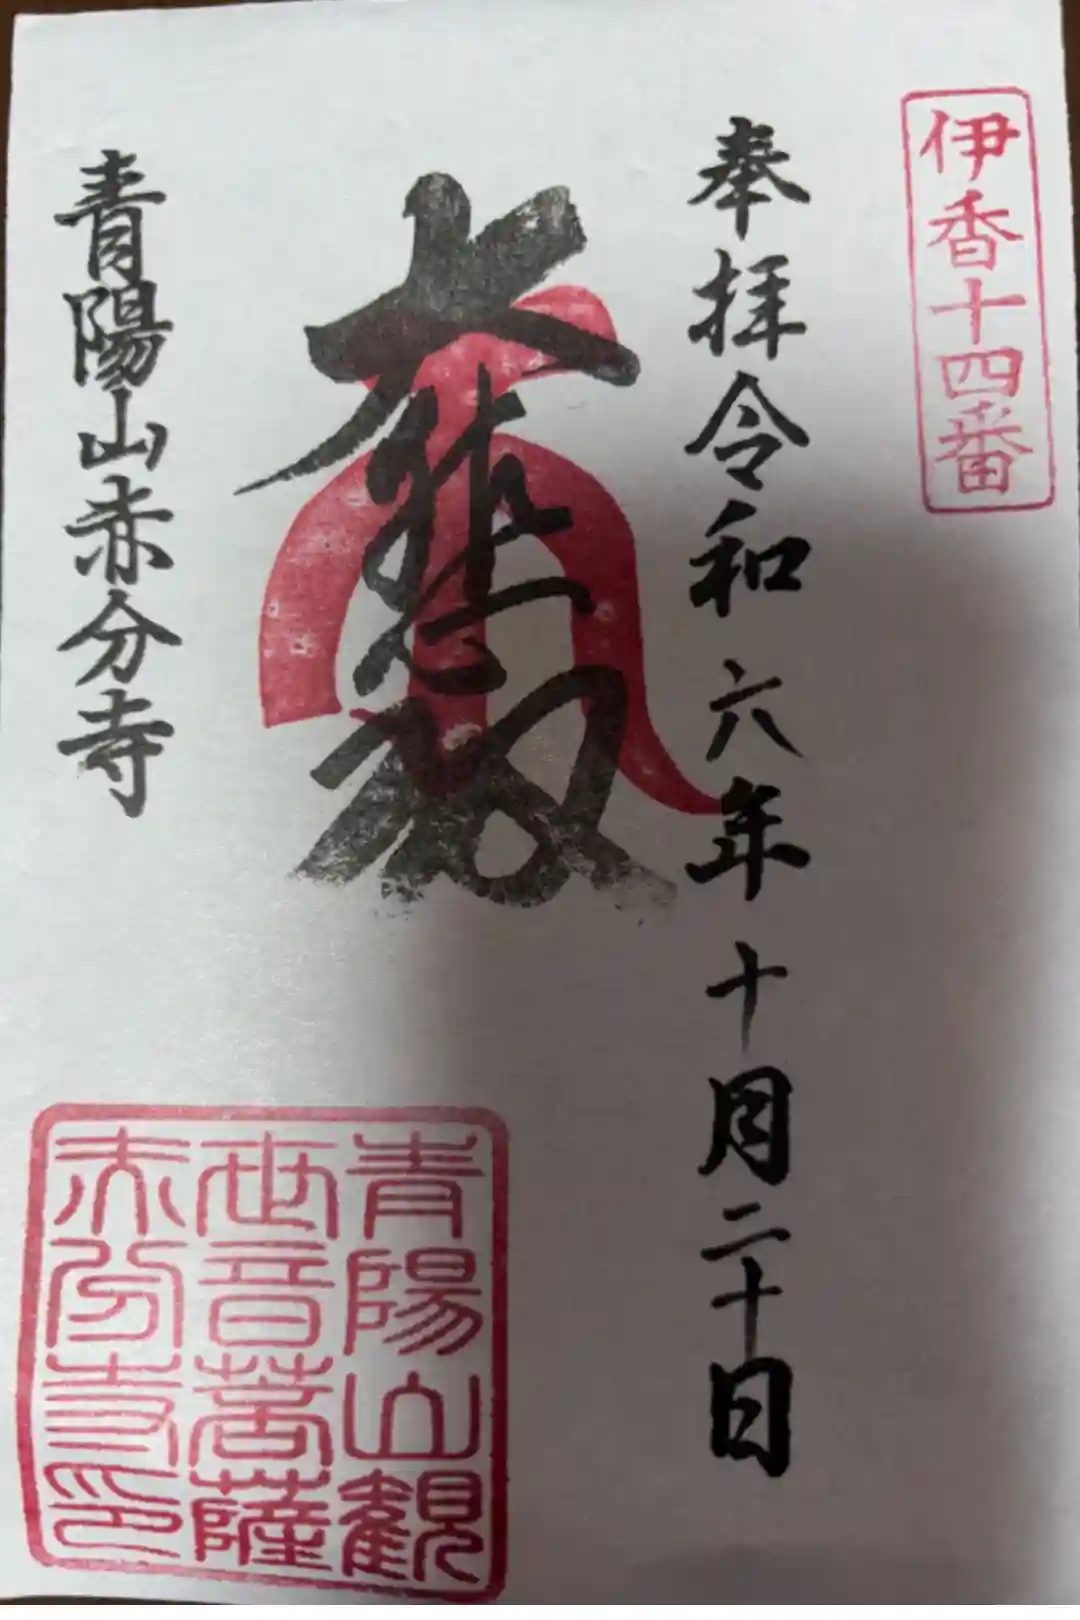 伊香十四番
奉拝令和六年十月二十日
大悲
青陽山赤分寺
青陽山観
世音菩薩
赤分寺印